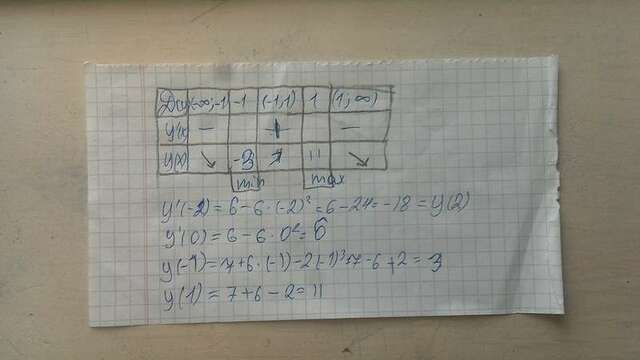 (-∞; -1) -1 (-1; 1) 1 (1; ∞)
y'(x) — + —
y(x) ↘ 3 ↗ 11 ↘
min max
y'(-2) = 6 - 6·(-2)² = 6 - 24 = -18 = y(2)
y'(0) = 6 - 6·0² = 6
y(-1) = 7 + 6·(-1) - 2(-1)³ = 7 - 6 + 2 = 3
y(1) = 7 + 6 - 2 = 11